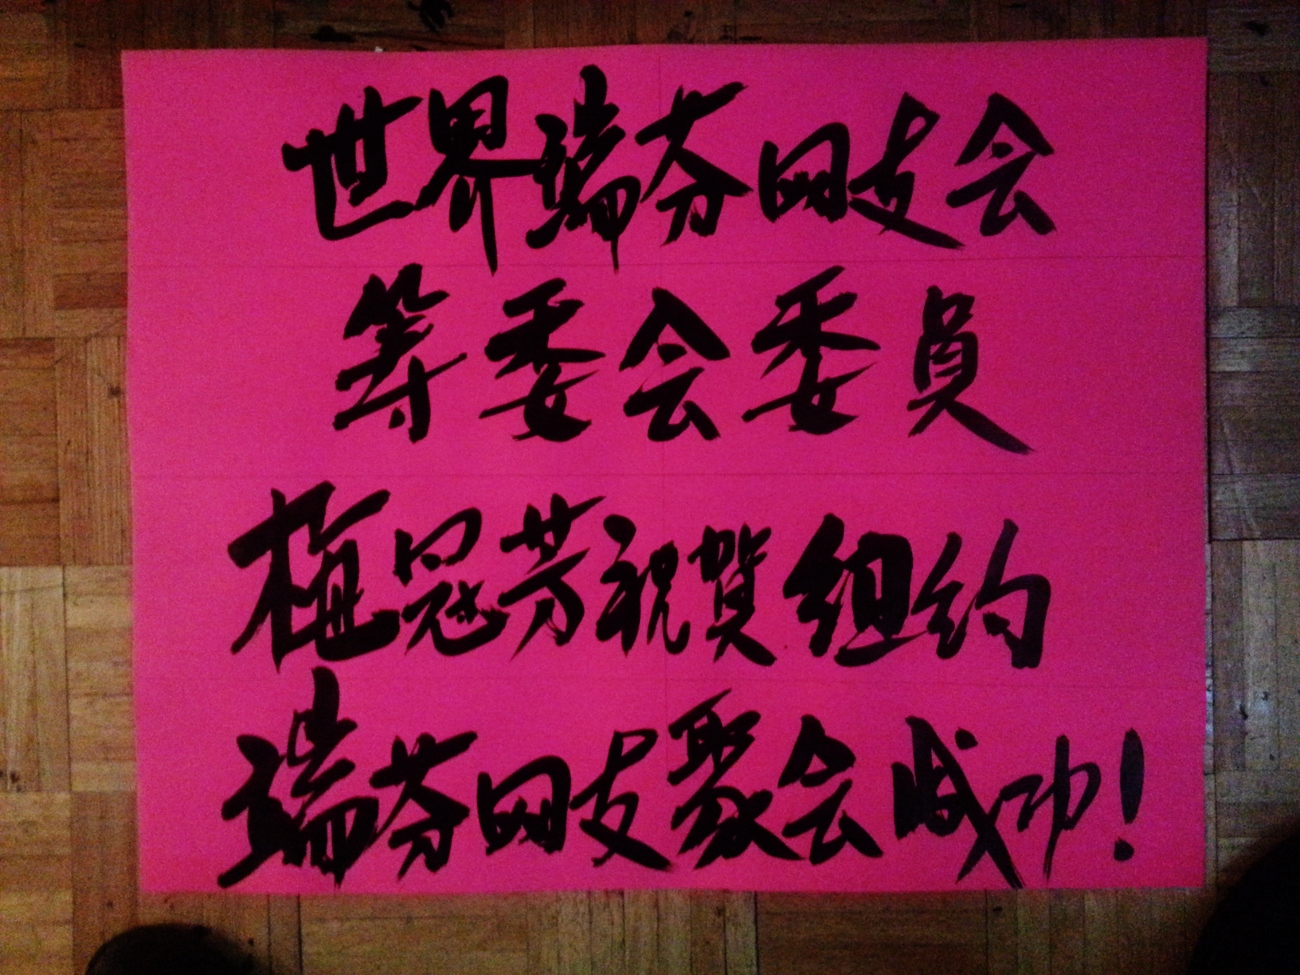 世界瑞芬网友会
筹委会委员
梅冠芳祝贺纽约
瑞芬网友聚会成功!